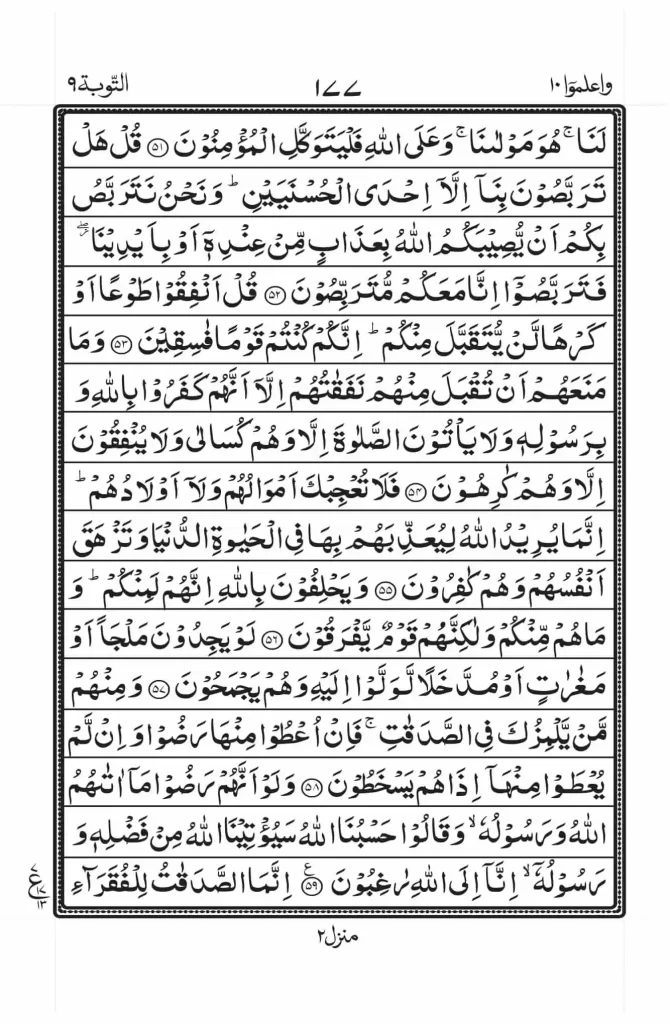 واعلموٓا ۱۰ ۱۷۷ التّوبة ۹
لَنَا ۚ هُوَ مَوْلٰىنَا ۚ وَعَلَى اللّٰهِ فَلْيَتَوَكَّلِ الْمُؤْمِنُوْنَ ﴿۵۱﴾ قُلْ هَلْ
تَرَبَّصُوْنَ بِنَاۤ اِلَّاۤ اِحْدَى الْحُسْنَيَيْنِ ؕ وَنَحْنُ نَتَرَبَّصُ
بِكُمْ اَنْ يُّصِيْبَكُمُ اللّٰهُ بِعَذَابٍ مِّنْ عِنْدِهٖۤ اَوْ بِاَيْدِيْنَا ۖؗ
فَتَرَبَّصُوْۤا اِنَّا مَعَكُمْ مُّتَرَبِّصُوْنَ ﴿۵۲﴾ قُلْ اَنْفِقُوْا طَوْعًا اَوْ
كَرْهًا لَّنْ يُّتَقَبَّلَ مِنْكُمْ ؕ اِنَّكُمْ كُنْتُمْ قَوْمًا فٰسِقِيْنَ ﴿۵۳﴾ وَمَا
مَنَعَهُمْ اَنْ تُقْبَلَ مِنْهُمْ نَفَقٰتُهُمْ اِلَّاۤ اَنَّهُمْ كَفَرُوْا بِاللّٰهِ وَ
بِرَسُوْلِهٖ وَلَا يَاْتُوْنَ الصَّلٰوةَ اِلَّا وَهُمْ كُسَالٰى وَلَا يُنْفِقُوْنَ
اِلَّا وَهُمْ كٰرِهُوْنَ ﴿۵۴﴾ فَلَا تُعْجِبْكَ اَمْوَالُهُمْ وَلَاۤ اَوْلَادُهُمْ ؕ
اِنَّمَا يُرِيْدُ اللّٰهُ لِيُعَذِّبَهُمْ بِهَا فِى الْحَيٰوةِ الدُّنْيَا وَتَزْهَقَ
اَنْفُسُهُمْ وَهُمْ كٰفِرُوْنَ ﴿۵۵﴾ وَيَحْلِفُوْنَ بِاللّٰهِ اِنَّهُمْ لَمِنْكُمْ ؕ وَ
مَا هُمْ مِّنْكُمْ وَلٰكِنَّهُمْ قَوْمٌ يَّفْرَقُوْنَ ﴿۵۶﴾ لَوْ يَجِدُوْنَ مَلْجَاً اَوْ
مَغٰرٰتٍ اَوْ مُدَّخَلًا لَّوَلَّوْا اِلَيْهِ وَهُمْ يَجْمَحُوْنَ ﴿۵۷﴾ وَمِنْهُمْ
مَّنْ يَّلْمِزُكَ فِى الصَّدَقٰتِ ۚ فَاِنْ اُعْطُوْا مِنْهَا رَضُوْا وَاِنْ لَّمْ
يُعْطَوْا مِنْهَاۤ اِذَا هُمْ يَسْخَطُوْنَ ﴿۵۸﴾ وَلَوْ اَنَّهُمْ رَضُوْا مَاۤ اٰتٰىهُمُ
اللّٰهُ وَرَسُوْلُهٗ ۙ وَقَالُوْا حَسْبُنَا اللّٰهُ سَيُؤْتِيْنَا اللّٰهُ مِنْ فَضْلِهٖ وَ
رَسُوْلُهٗۤ ۙ اِنَّاۤ اِلَى اللّٰهِ رٰغِبُوْنَ ﴿۵۹﴾ۧ اِنَّمَا الصَّدَقٰتُ لِلْفُقَرَآءِ
۷
ع
۱۷
۱۳
منزل۲